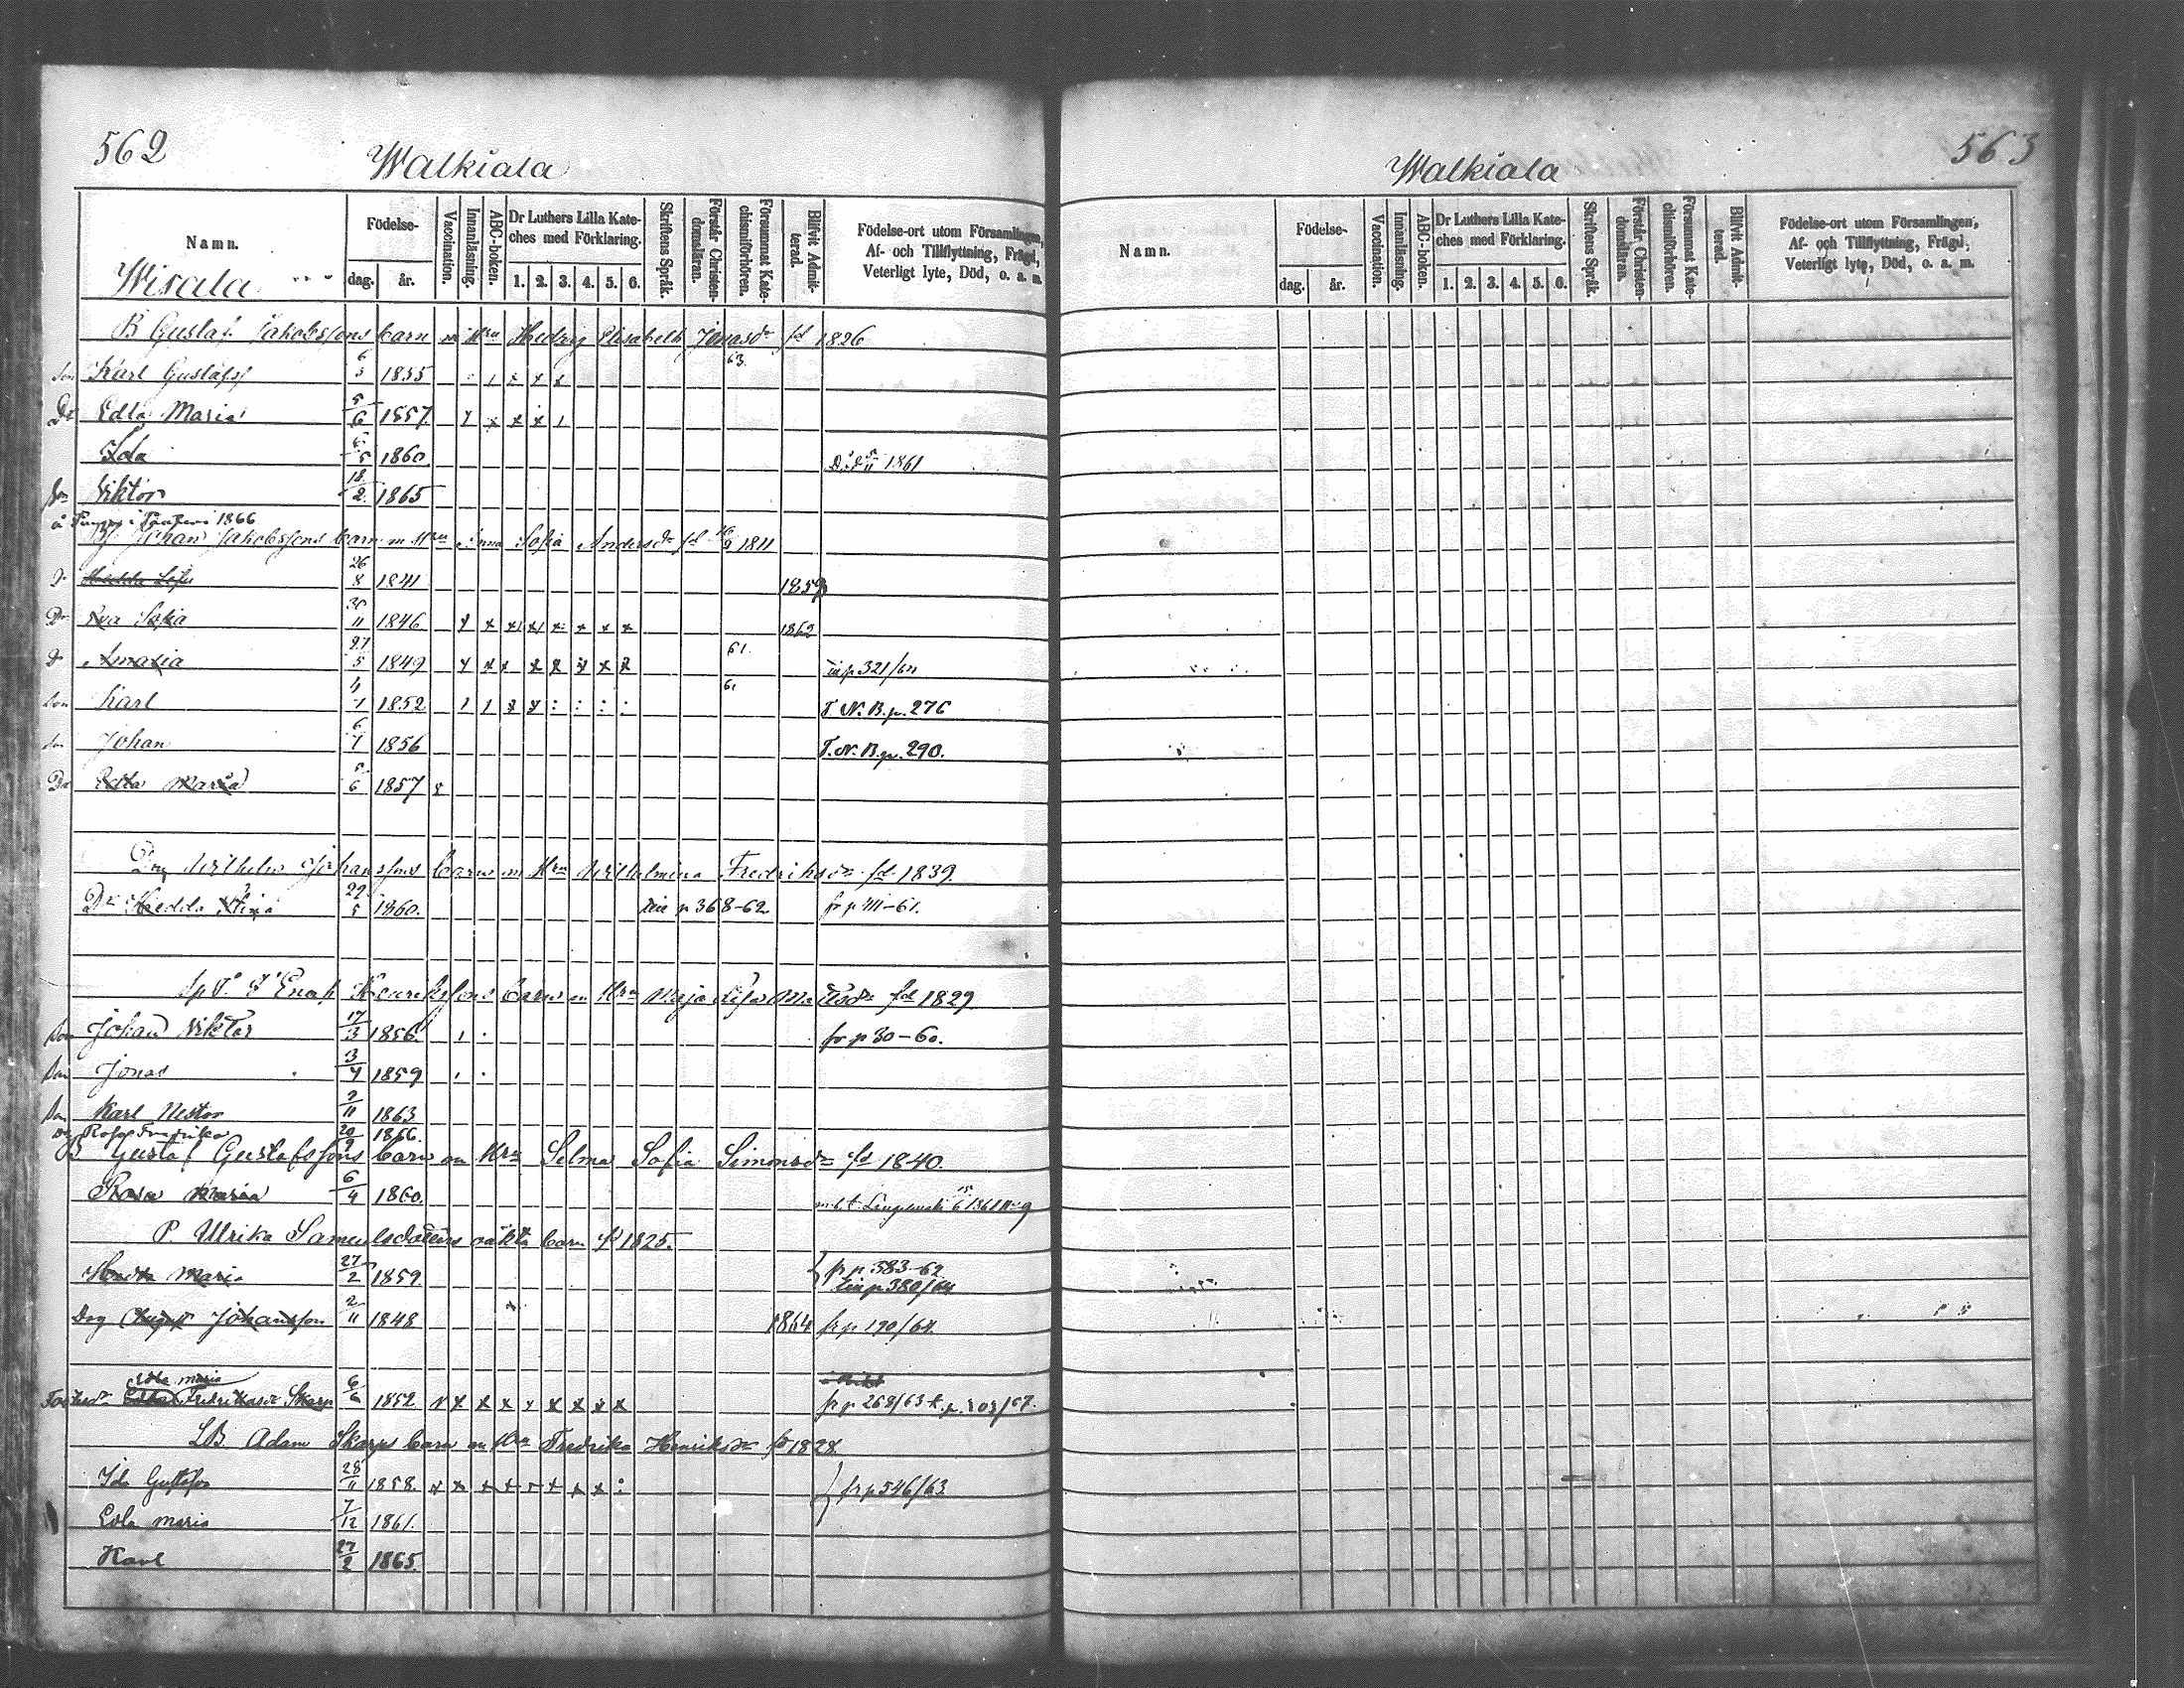 562
Walkiala
Namn.
Födelse-
dag. år.
Vaccination.
Innanläsning.
ABC-boken.
Dr Luthers Lilla Kate-
ches med Förklaring.
1. 2. 3. 4. 5. 6.
Skriftens Språk.
Förstår Christen-
domsläran.
Försummat Kate-
chismiförhören.
Blifvit Admit-
terad.
Födelse-ort utom Församlingen,
Af- och Tillflyttning, Frägd,
Veterligt lyte, Död, o. a. m.
Wisala
B Gustaf Jakobssons barn m Hru Hedvig Elisabeth Jonasdr fd 1826
Son Karl Gustafsf 6/5 1855 63.
Dr Edla Maria 5/6 1857
Ida 6/5 1860 1861
Son Viktor 18/2 1865
1866
Johan Jakobssons barn m Hru Anna Sofia Andersdr fd 1811
Dr Hedda 26/8 1841 1859
Dr Eva Sofia 30/11 1846 1862
Dr Amalia 27/5 1849 61. p 321/64
Son Karl 4/1 1852 61 T. N. B. p. 276
Son Johan 6/1 1856 T. N. B. p. 290.
Dr Edla Maria 5/6 1857
Drg Wilhelm Johanssons barn m Hru Wilhelmina Fredriksdr fd 1839.
Dr Hedda Stina 22/5 1860. p 368-62. fr p 411-61.
Henrikssons barn m Hru Maja Lisa Mattsdr fd 1829
Son Johan Viktor 17/3 1856 fr p 30-60.
Son Jonas 3/4 1859
Son Karl Nestor 2/11 1863
Rosa Fredrika 20/9 1866.
B Gustaf Gustafssons barn m Hru Selma Sofia Simonsdr fd 1840.
Rosa Maria 6/4 1860.
P. Ulrika Samuelsdotters oäkta barn fd 1825.
Maria 27/2 1859 fr p 583-62
p 380/64
Drg August Johansson 2/11 1848 1864 fr p 190/64.
Edla Maria
Fredriksdr Skarp 6/6 1852 fr p 268/63
LB. Adam Skarps barn m Hru Fredrika Henriksdr fd 1828.
Ida Gustafva 28/11 1858. fr p 546/63
Edla Maria 7/12 1861.
Karl 27/2 1865.
563
Walkiala
Namn.
Födelse-
dag. år.
Vaccination.
Innanläsning.
ABC-boken.
Dr Luthers Lilla Kate-
ches med Förklaring.
1. 2. 3. 4. 5. 6.
Skriftens Språk.
Förstår Christen-
domsläran.
Försummat Kate-
chismiförhören.
Blifvit Admit-
terad.
Födelse-ort utom Församlingen,
Af- och Tillflyttning, Frägd,
Veterligt lyte, Död, o. a. m.